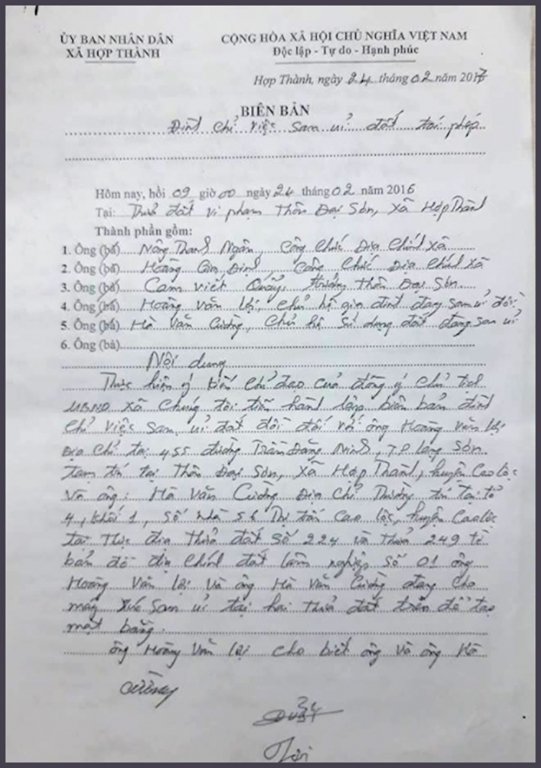 ỦY BAN NHÂN DÂN
XÃ HỢP THÀNH
CỘNG HÒA XÃ HỘI CHỦ NGHĨA VIỆT NAM
Độc lập - Tự do - Hạnh phúc
Hợp Thành, ngày 24 tháng 02 năm 2017
BIÊN BẢN
Đình chỉ việc san ủi đất trái phép
Hôm nay, hồi 09 giờ 00 ngày 24 tháng 02 năm 2016
Tại: Thửa đất vi phạm Thôn Đại Sơn, xã Hợp Thành
Thành phần gồm:
1. Ông (bà) Nông Thanh Ngân, Công chức Địa chính xã
2. Ông (bà) Hoàng Công Định, Công chức Địa chính xã
3. Ông (bà) Cam Viết Quầy, trưởng thôn Đại Sơn
4. Ông (bà) Hoàng Văn Lại, chủ hộ gia đình đang san ủi đồi
5. Ông (bà) Hà Văn Cường, Chủ hộ sử dụng đất đang san ủi
6. Ông (bà)
Nội dung
Thực hiện ý kiến chỉ đạo của đồng chí Chủ tịch
UBND xã chúng tôi tiến hành lập biên bản đình
chỉ việc san ủi đất đồi đối với ông Hoàng Văn Lại
Địa chỉ tại 455 đường Trần Đăng Ninh, TP Lạng Sơn
tạm trú tại Thôn Đại Sơn, xã Hợp Thành, huyện Cao Lộc
Và ông: Hà Văn Cường Địa chỉ Thường trú tại tổ
4, khối 1, số nhà 56 Thị trấn Cao Lộc, huyện Cao Lộc
tại thực địa thửa đất số 224 và thửa 249 tờ
bản đồ địa chính đất lâm nghiệp số 01 ông
Hoàng Văn Lại và ông Hà Văn Cường đang cho
máy xúc san ủi tại hai thửa đất trên để tạo
mặt bằng.
ông Hoàng Văn Lại cho biết ông và ông Hà
Cường
Lại